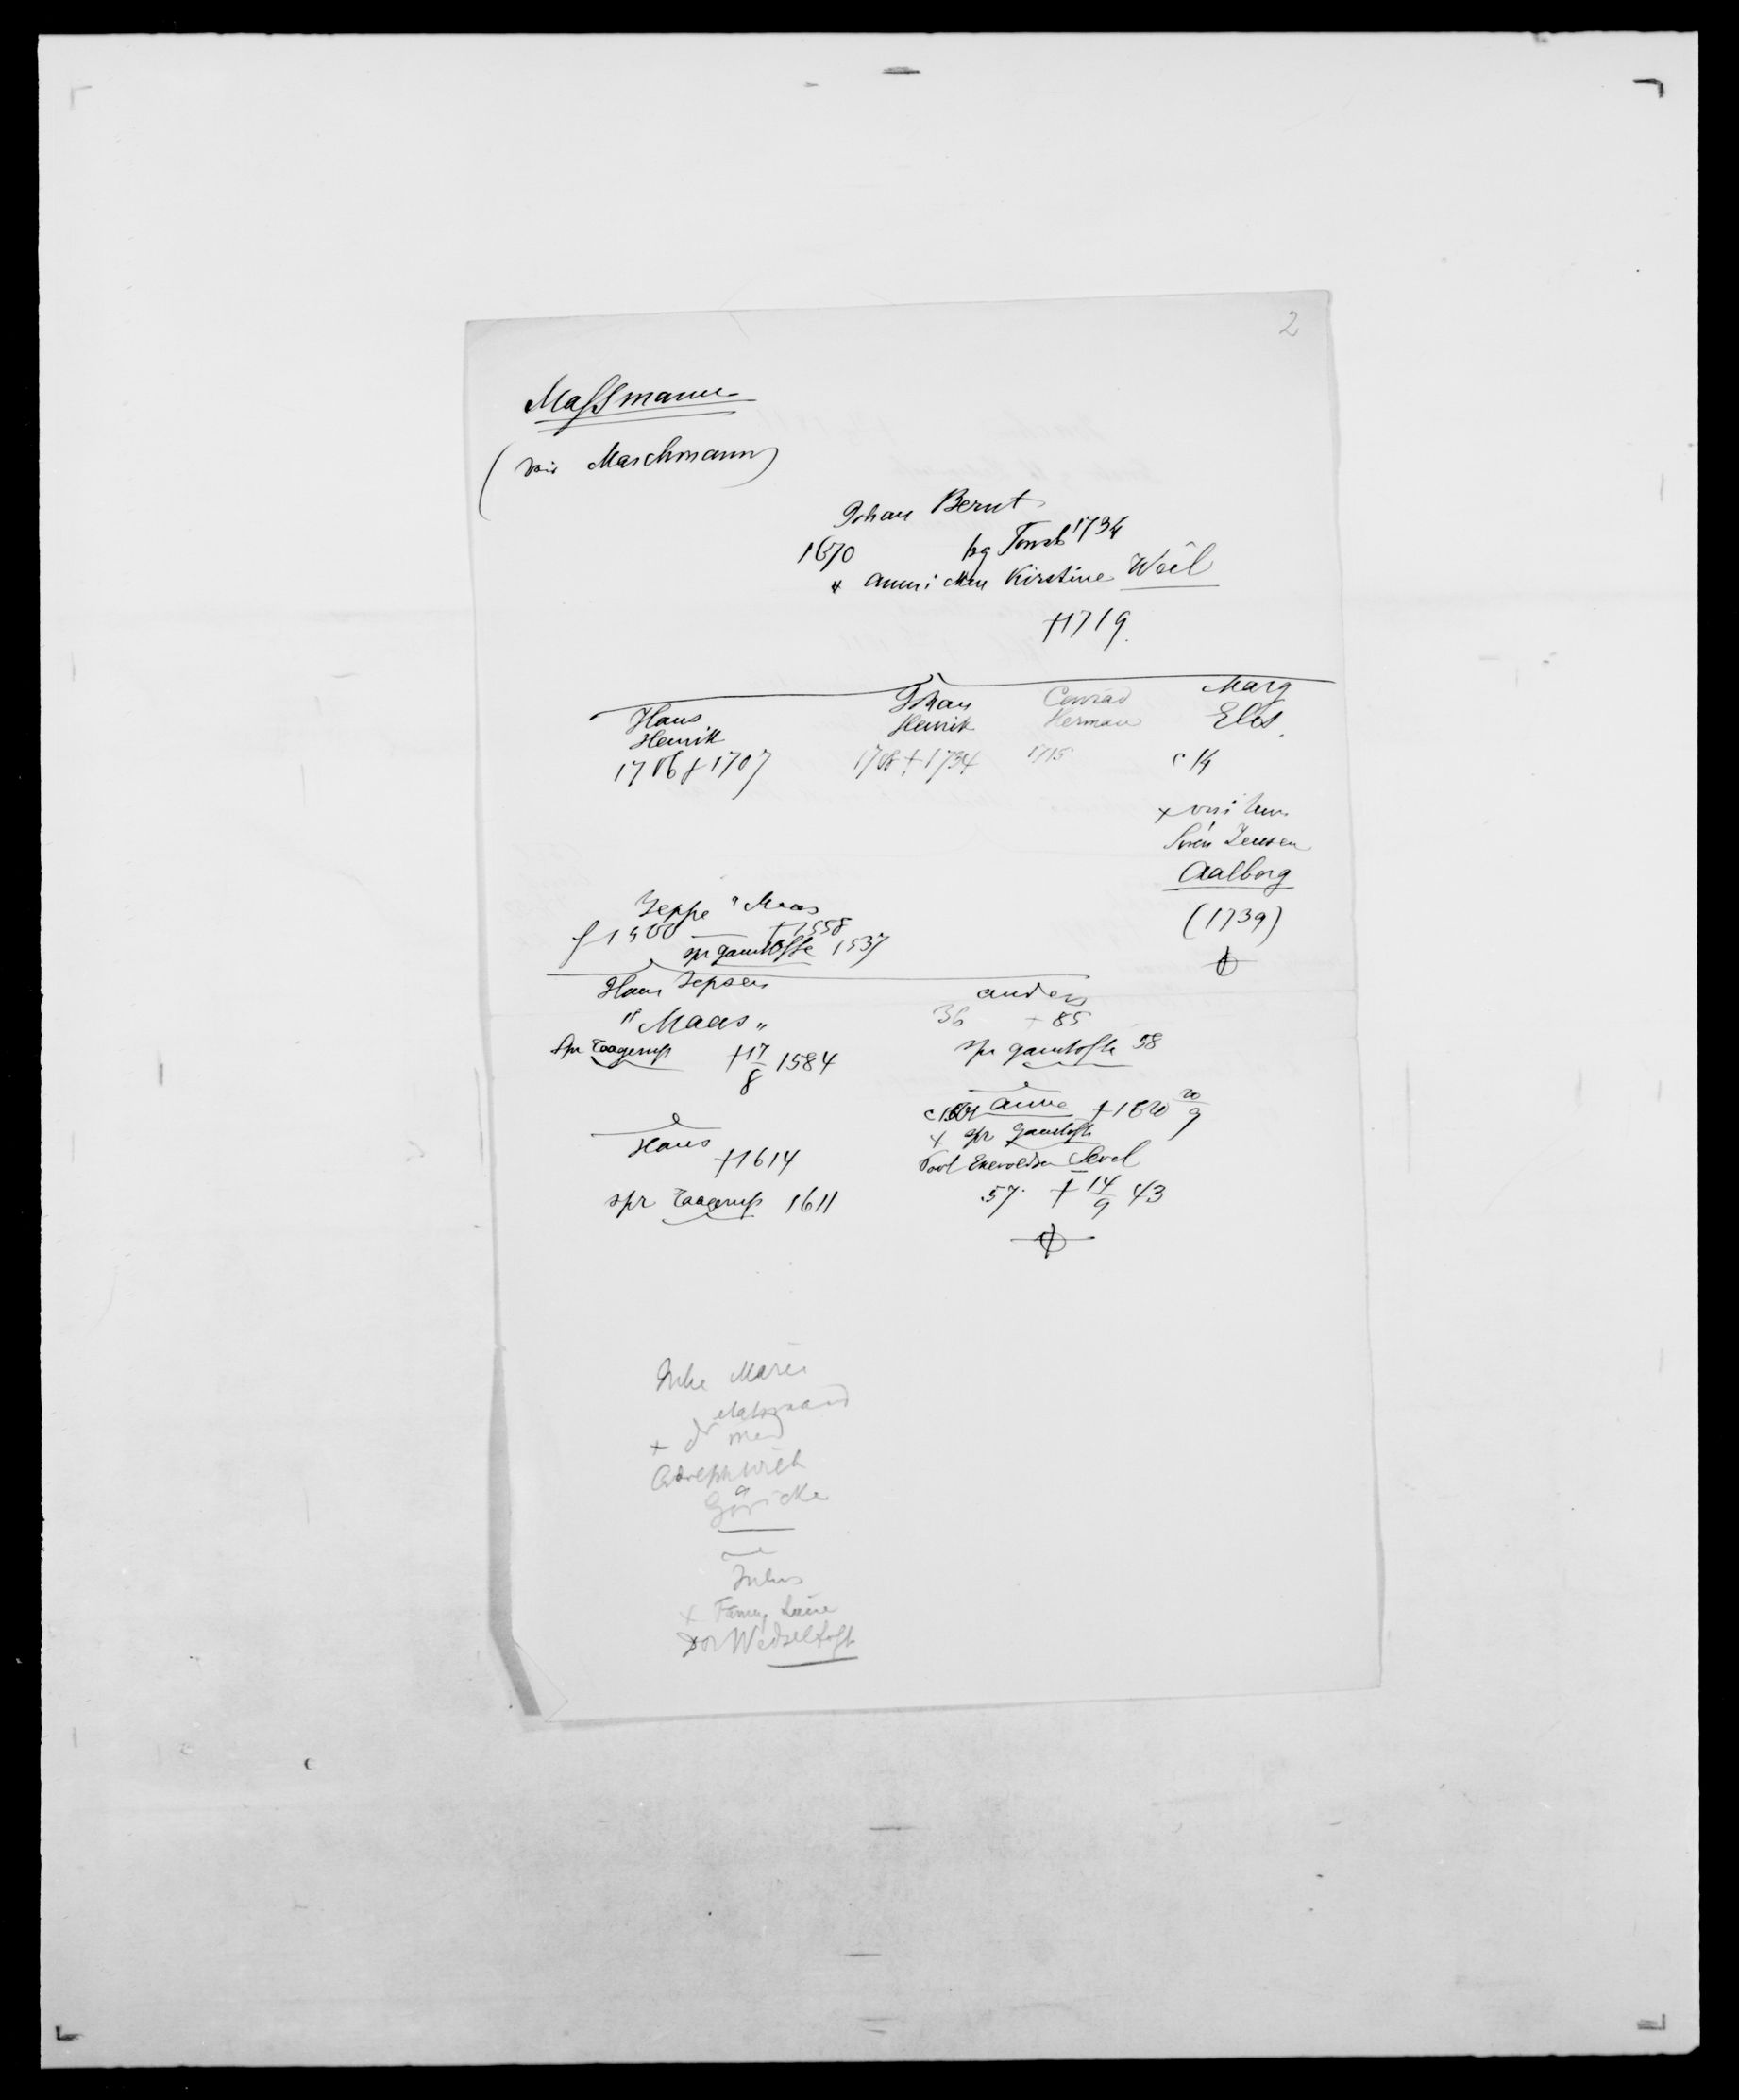 2
Maſsmann
( Maschmann)
Johan Bernt
1670 bg 1734
Kirstine Weil
†1719.
Hans
Henrik
1706 † 1707
Johan
Henrik
1708 † 1734
Conrad
Herman
1715
Marg
Elis.
c 14
×
Sören Jensen
Aalborg
(1739)
Jeppe "Maas
f 1500 †1558
spr gamtofte 1537
Hans Jepsen
"Maas"
Spr Taagerup †17/8 1584
anders
36 + 85
spr gamtofte 58
Hans
†1614
spr Taagerup 1611
anna † 1620 20/9
× spr gamtofte
Enevoldsen
57. † 14/9 43
Julie Marie
× Dr med
Adolph Wilh
Göricke
Julius
× Fanny
Wedseltoft